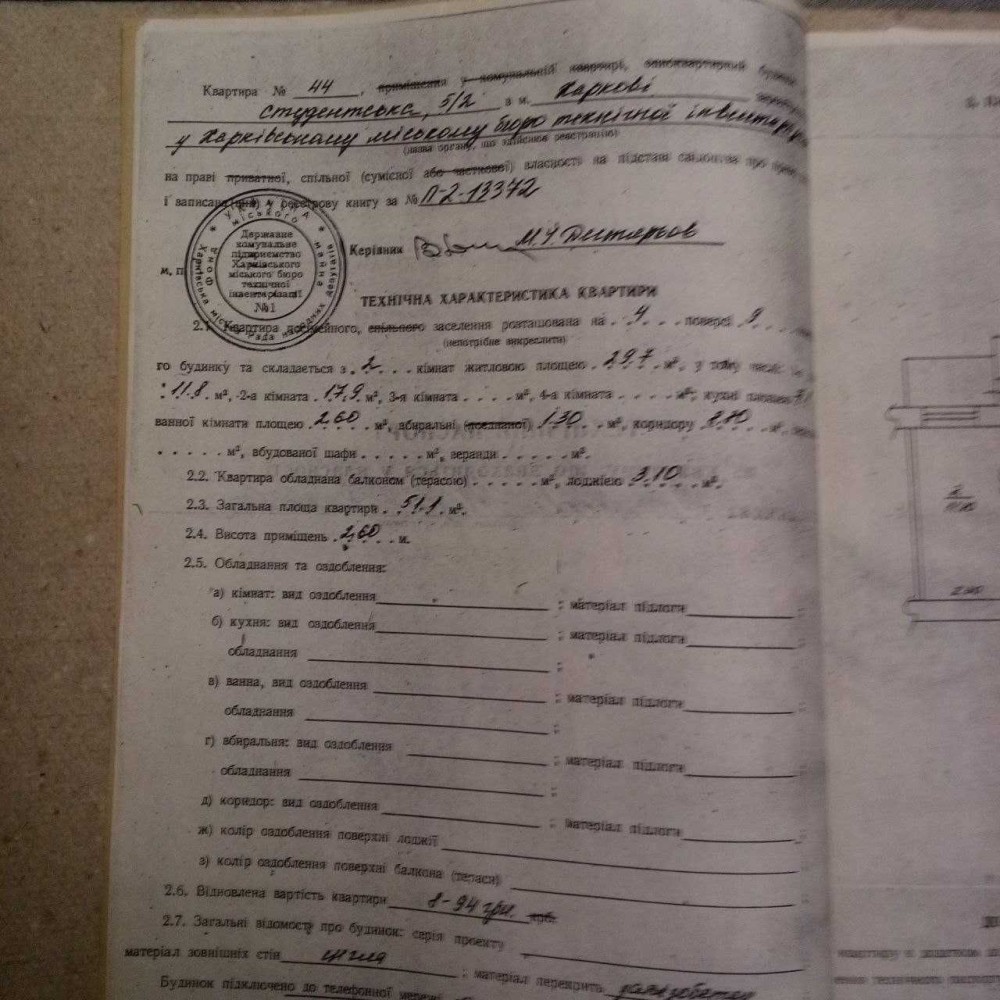 Квартира № 44, приміщення у комунальній квартирі, одноквартирний будинок
студентська, 5/2 в м. Харкові
у Харківському міському бюро технічної інвентаризації
(назва органу, що здійснює реєстрацію)
на праві приватної, спільної (сумісної або часткової) власності на підставі свідоцтва про
і записана в реєстрову книгу за № П-2-13372
Керівник
М. П.
Державне
комунальне
підприємство
Харківського
міського бюро
технічної
інвентаризації
№1
ТЕХНІЧНА ХАРАКТЕРИСТИКА КВАРТИРИ
2.1. Квартира посімейного, спільного заселення розташована на 4 поверсі 9
(непотрібне викреслити)
го будинку та складається з 2 кімнат житловою площею 29.7 м², у тому числі
11.8 м², 2-а кімната 17.9 м², 3-я кімната . . . . м², 4-а кімната . . . . . м², кухні площею
ванної кімнати площею 2,60 м², вбиральні (поєднаної) 1.30 м², коридору м²
. . . . . м², вбудованої шафи . . . . . м², веранди . . . . . м².
2.2. Квартира обладнана балконом (терасою) . . . . . м², лоджією 3.10 м².
2.3. Загальна площа квартири 51.1 м².
2.4. Висота приміщень 2,60 м.
2.5. Обладнання та оздоблення:
а) кімнат: вид оздоблення ; матеріал підлоги ;
б) кухня: вид оздоблення ; матеріал підлоги ;
обладнання ;
в) ванна, вид оздоблення ; матеріал підлоги ;
обладнання ;
г) вбиральня: вид оздоблення ; матеріал підлоги ;
обладнання ;
д) коридор: вид оздоблення ; матеріал підлоги ;
ж) колір оздоблення поверхні лоджії
з) колір оздоблення поверхні балкона (тераси)
2.6. Відновлена вартість квартири 8-94 грн. крб.
2.7. Загальні відомості про будинок: серія проекту
матеріал зовнішніх стін цегла ; матеріал перекрить
Будинок підключено до телефонної мережі